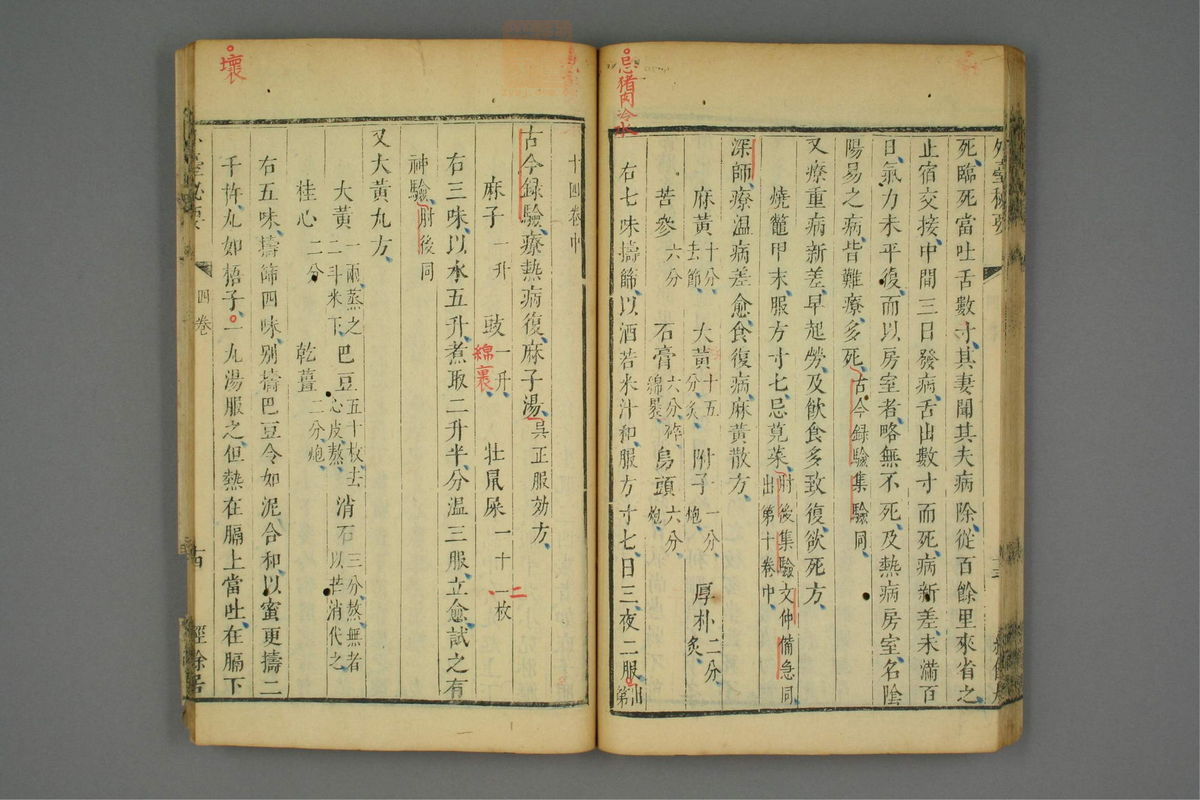 外臺秘要
死臨死當吐舌數寸其妻聞其夫病除從百餘里來省之
止宿交接中間三日發病舌出數寸而死病新差未滿百
日氣力未平復而以房室者略無不死及熱病房室名陰
陽易之病皆難療多死古今録驗集驗同
又療重病新差早起勞及飲食多致復欲死方
燒鼈甲末服方寸匕忌莧菜肘後集驗文仲備急同
出第十卷中
深師療温病差愈食復病麻黃散方
麻黃十分去節 大黃十五分炙 附子一分炮 厚朴二分炙
苦參六分 石膏六分碎綿裹 烏頭六分炮
右七味擣篩以酒若米汁和服方寸匕日三夜二服出第
忌猪肉冷水
十四卷中
古今録驗療熱病復麻子湯吴正服効方
麻子一升 豉一升 牡鼠屎一十一枚
綿裹
二
右三味以水五升煮取二升半分温三服立愈試之有
神驗肘後同
又大黃丸方
大黃一兩蒸之二斗米下 巴豆五十枚去心皮熬 消石三分熬無者以芒消代之
桂心二分 乾薑二分炮
右五味擣篩四味别擣巴豆令如泥合和以蜜更擣二
千杵丸如梧子一丸湯服之但熱在膈上當吐在膈下
壞
四卷
十四
經餘居